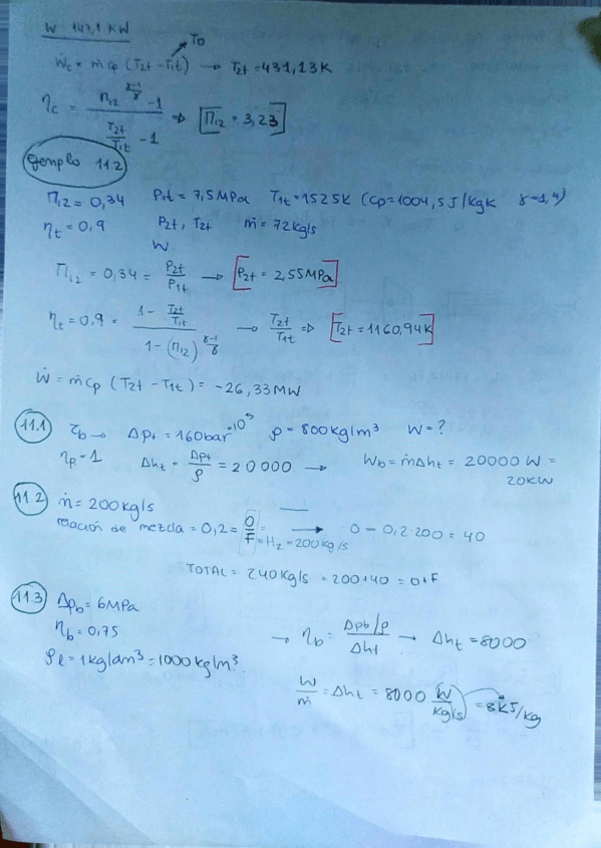 W = 147,1 KW
→ T0
Ẇc = ṁ cp (T2t - T1t) → T2t = 431,13K
ηc = (Π12^((γ-1)/γ) - 1) / (T2t/T1t - 1) ⇒ [Π12 = 3,23]
Ejemplo 11.2
Π12 = 0,34 P1t = 7,5MPa T1t = 1525K (cp = 1004,5J/kgK γ=1,4)
ηt = 0,9 P2t, T2t ṁ = 72kg/s
W
Π12 = 0,34 = P2t/P1t → [P2t = 2,55MPa]
ηt = 0,9 = (1 - T2t/T1t) / (1 - (Π12)^((γ-1)/γ)) → T2t/T1t ⇒ [T2t = 1160,94K]
Ẇ = ṁ cp (T2t - T1t) = -26,33MW
11.1 τb → Δpt = 160bar ·10^5 ρ = 800kg/m³ W = ?
ηp = 1 Δht = Δpt/ρ = 20000 → Wb = ṁΔht = 20000 W =
20KW
11.2 ṁ = 200kg/s
relación de mezcla = 0,2 = O/F = H2 = 200kg/s → O = 0,2·200 = 40
TOTAL = 240kg/s = 200+40 = O+F
11.3 Δpb = 6MPa
ηb = 0,75 → ηb = (Δpb/ρ)/Δht → Δht = 8000
ρl = 1kg/dm³ = 1000kg/m³
W/ṁ = Δht = 8000 (W/kg/s) = 8KJ/kg